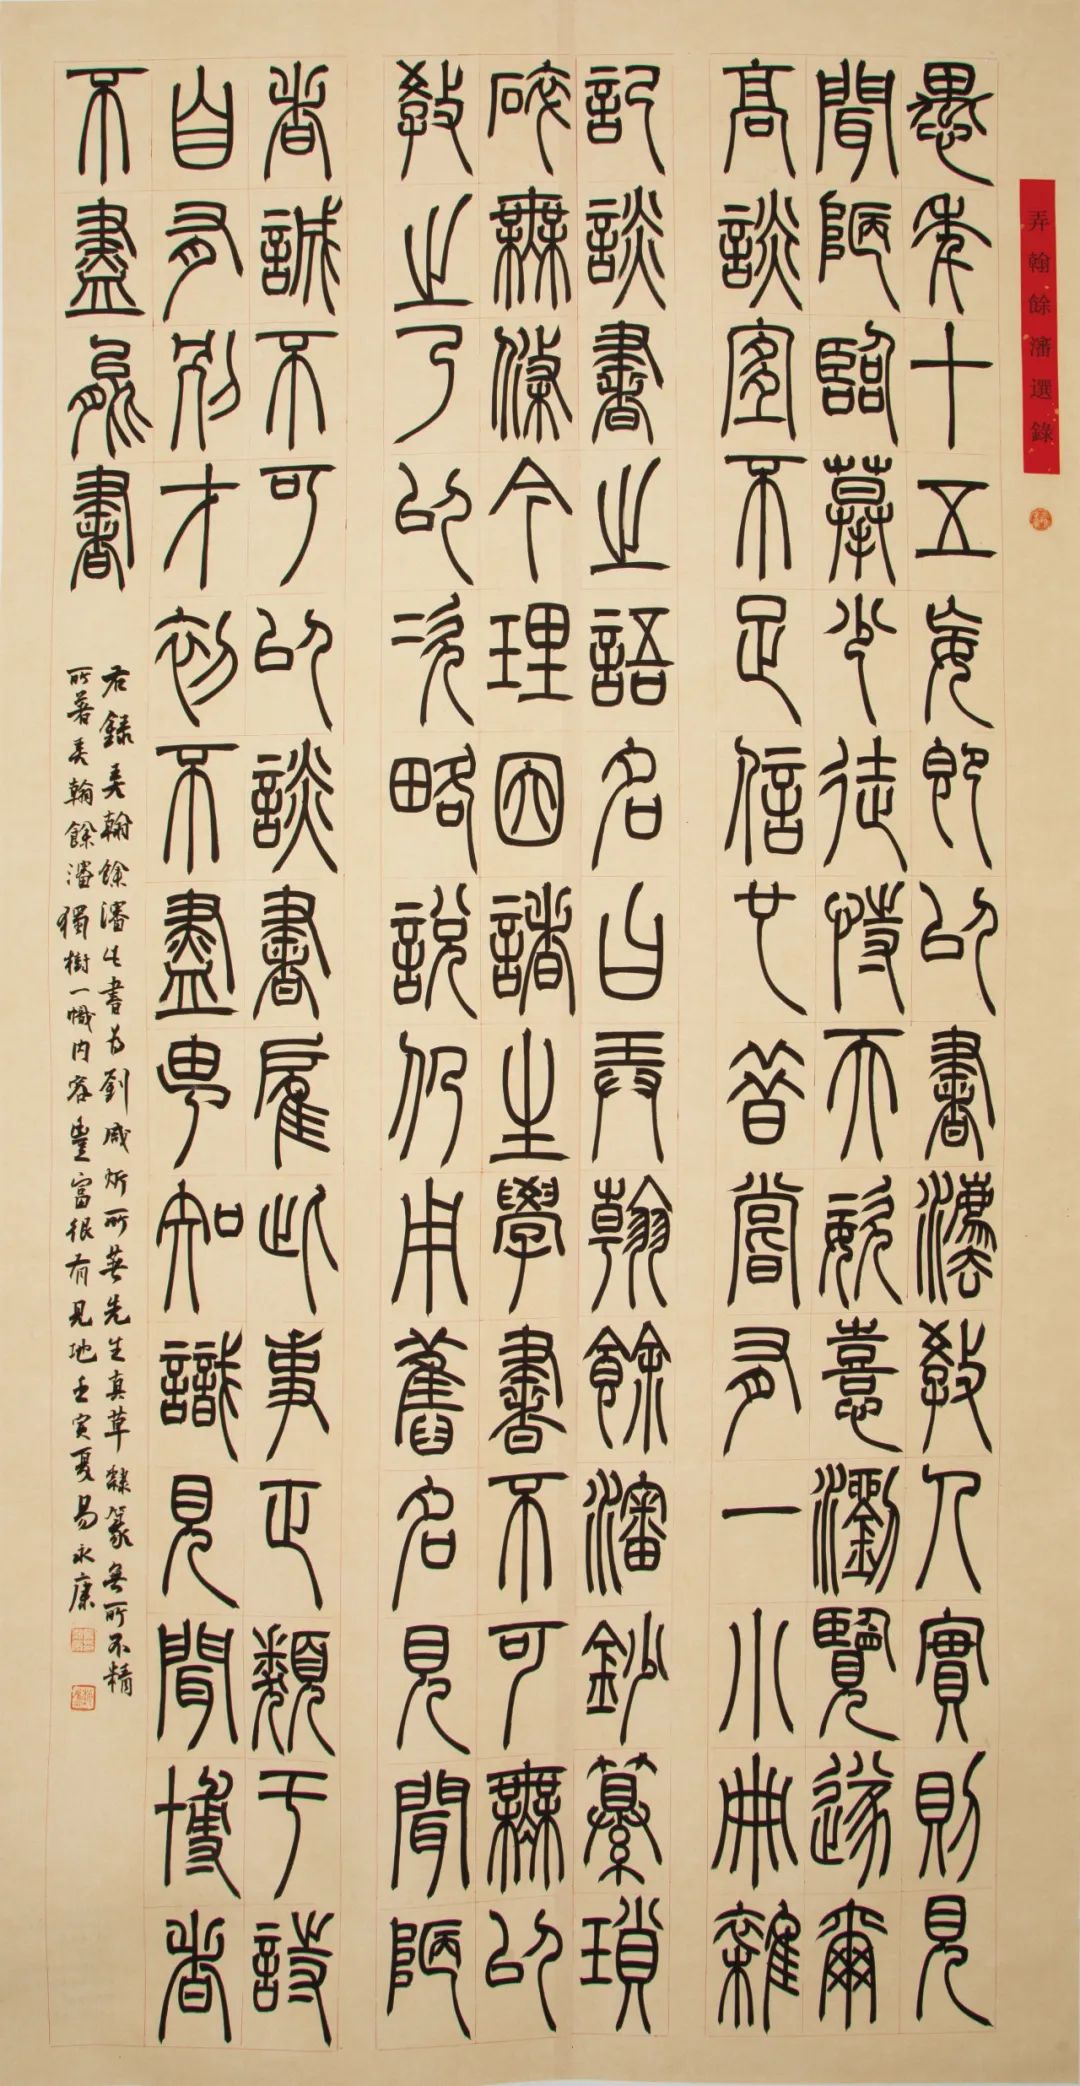 弄翰餘瀋選錄
愚年十五每即以書灋教人實則見
聞陋臨摹少徒恃天姿憙瀏覽遂爾
高談宜不足信也昔嘗有一小冊雜
記談書之語名曰弄翰餘瀋鈔纂瑣
碎無條今理因諸生學書不可無以
教之乃以次略說仍用舊名見聞陋
者誠不可以談書雇此事正類于詩
自有別才初不盡甹知識見聞博者
不盡能書
右錄弄翰餘瀋此書為劉咸炘所著先生真草隸篆無所不精
所著弄翰餘瀋獨樹一幟內容豐富很有見地壬寅夏易永康